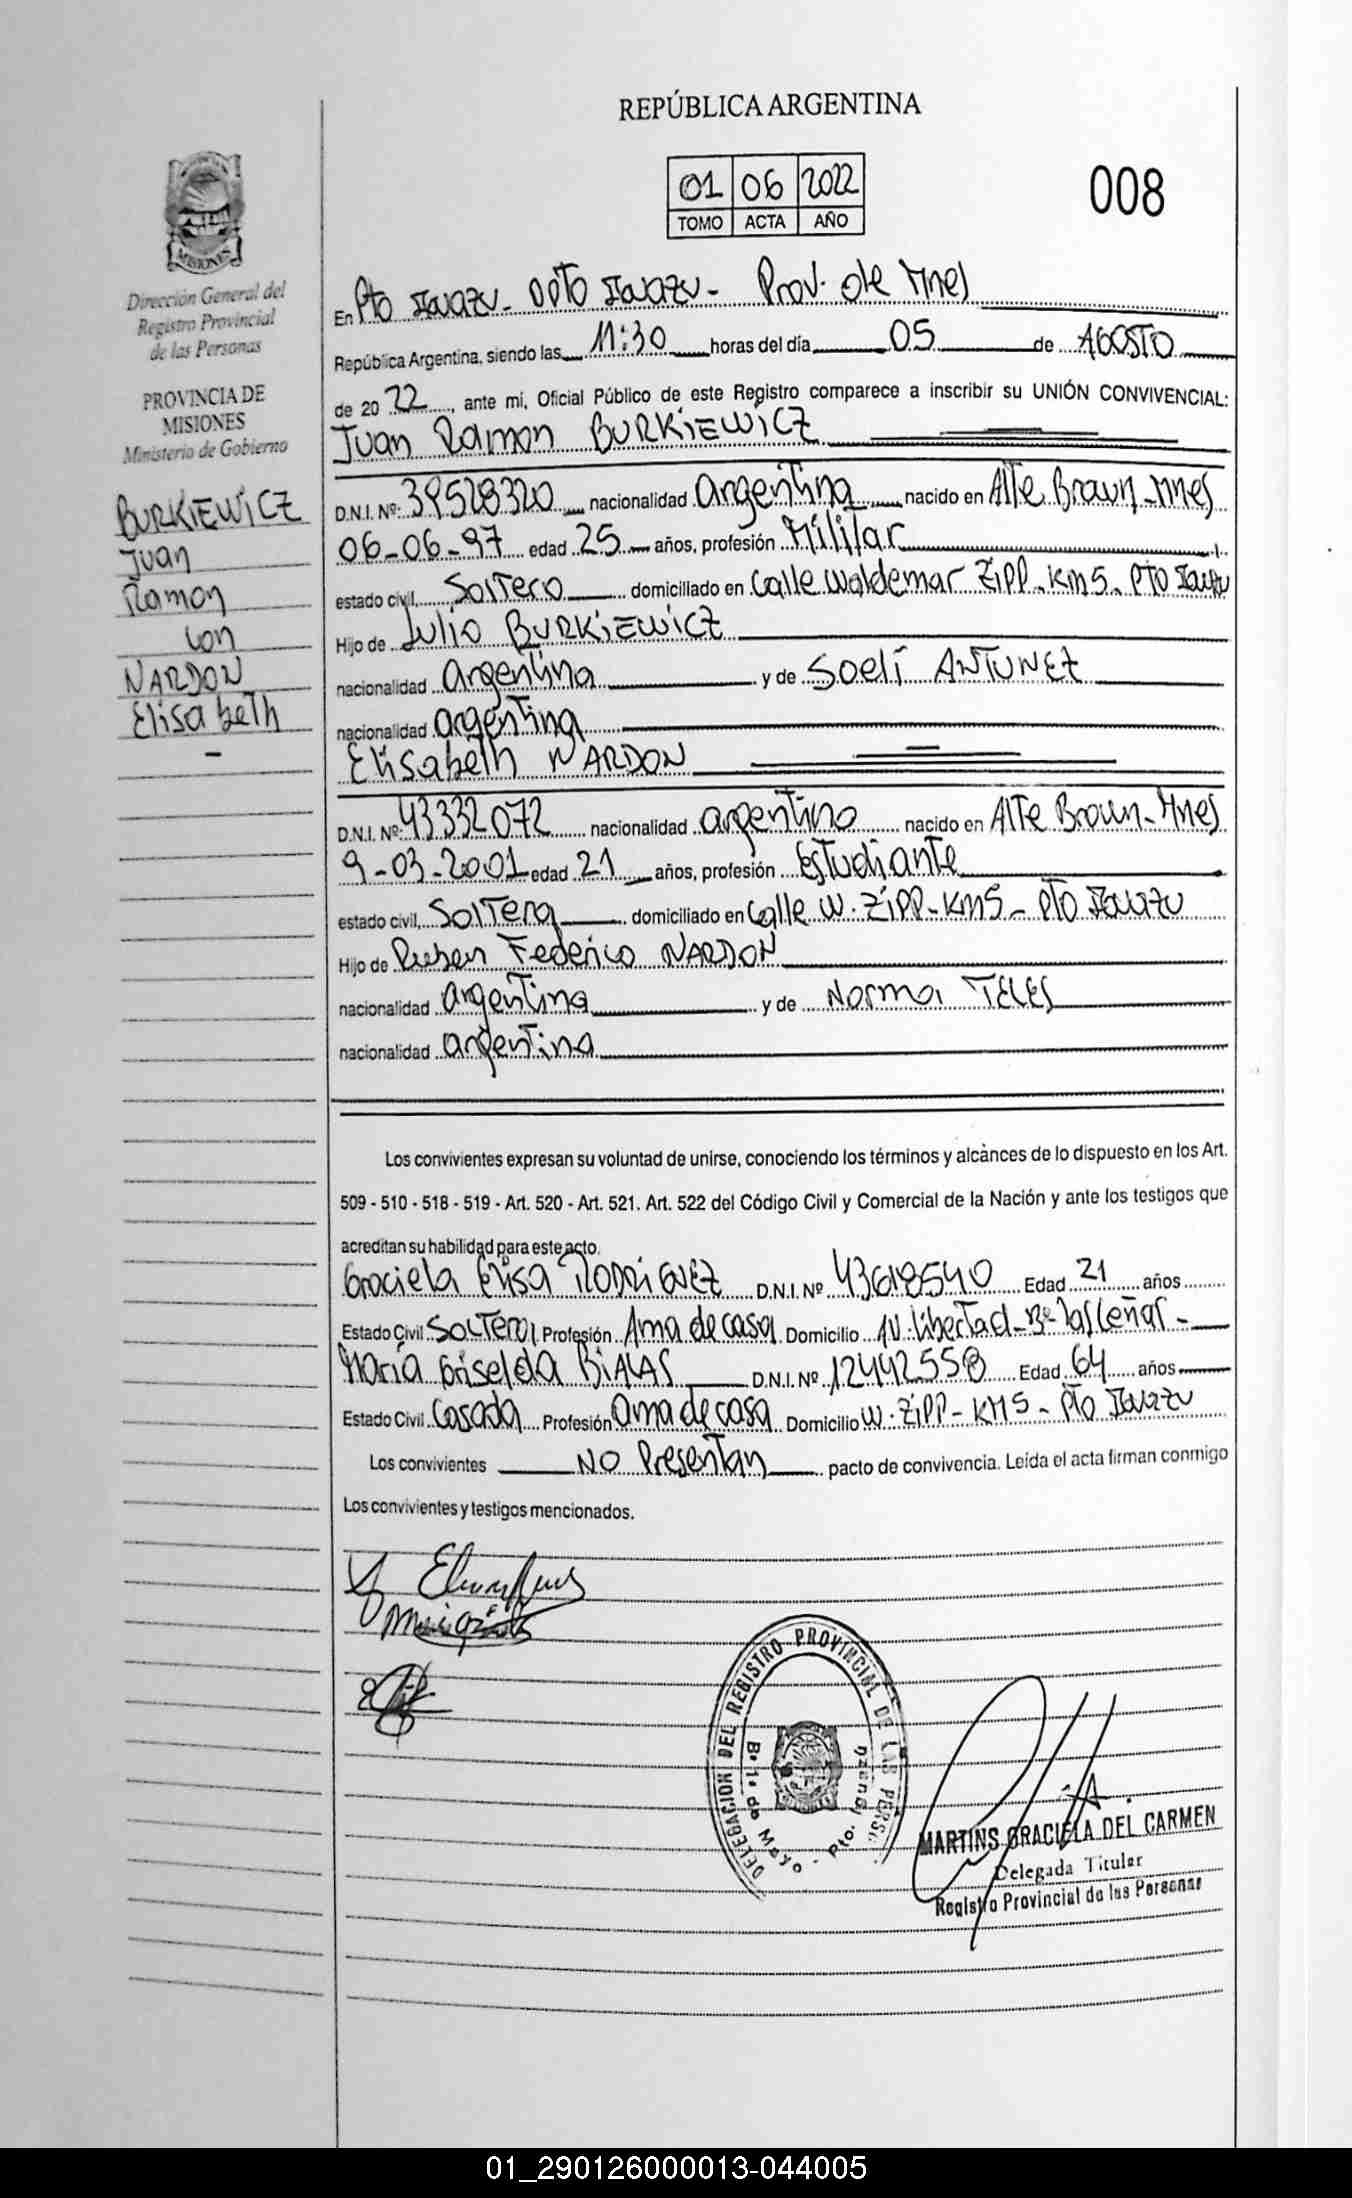 REPÚBLICA ARGENTINA
01 06 2022
TOMO ACTA AÑO
008
MISIONES
Dirección General del
Registro Provincial
de las Personas
PROVINCIA DE
MISIONES
Ministerio de Gobierno
BURKIEWICZ
Juan
Ramon
con
NARDON
Elisabeth
-
En Pto Iguazu - Dpto Iguazu - Prov. de Mnes
República Argentina, siendo las 11:30 horas del día 05 de AGOSTO
de 20 22, ante mi, Oficial Público de este Registro comparece a inscribir su UNIÓN CONVIVENCIAL:
Juan Ramon BURKIEWICZ
D.N.I. Nº: 39528320 nacionalidad Argentina nacido en Alte Brown - Mnes
06-06-97 edad 25 años, profesión Militar
estado civil, Soltero domiciliado en Calle Waldemar Zipp - Km5 - Pto Iguazu
Hijo de Julio BURKIEWICZ
nacionalidad Argentina y de Soeli ANTUNEZ
nacionalidad argentina
Elisabeth NARDON
D.N.I. Nº: 43332072 nacionalidad argentino nacido en Alte Brown - Mnes
9-03-2001 edad 21 años, profesión Estudiante
estado civil, Soltera domiciliado en Calle W. Zipp - Km5 - Pto Iguazu
Hijo de Ruben Federico NARDON
nacionalidad argentina y de Norma TELES
nacionalidad argentina
Los convivientes expresan su voluntad de unirse, conociendo los términos y alcances de lo dispuesto en los Art.
509 - 510 - 518 - 519 - Art. 520 - Art. 521. Art. 522 del Código Civil y Comercial de la Nación y ante los testigos que
acreditan su habilidad para este acto.
Graciela Elisa RODRIGUEZ D.N.I. Nº 43618540 Edad 21 años
Estado Civil Soltera Profesión Ama de casa Domicilio AV. Libertad - Bº Las Leñas -
Maria Griselda BIALAS D.N.I. Nº 12442558 Edad 64 años
Estado Civil Casada Profesión Ama de casa Domicilio W. Zipp - KM 5 - Pto Iguazu
Los convivientes NO Presentan pacto de convivencia. Leída el acta firman conmigo
Los convivientes y testigos mencionados.
DELEGACION DEL REGISTRO PROVINCIAL DE LAS PERSO
Bº 1º de Mayo - Pto.
MARTINS GRACIELA DEL CARMEN
Delegada Titular
Registro Provincial de las Personas
01_290126000013-044005